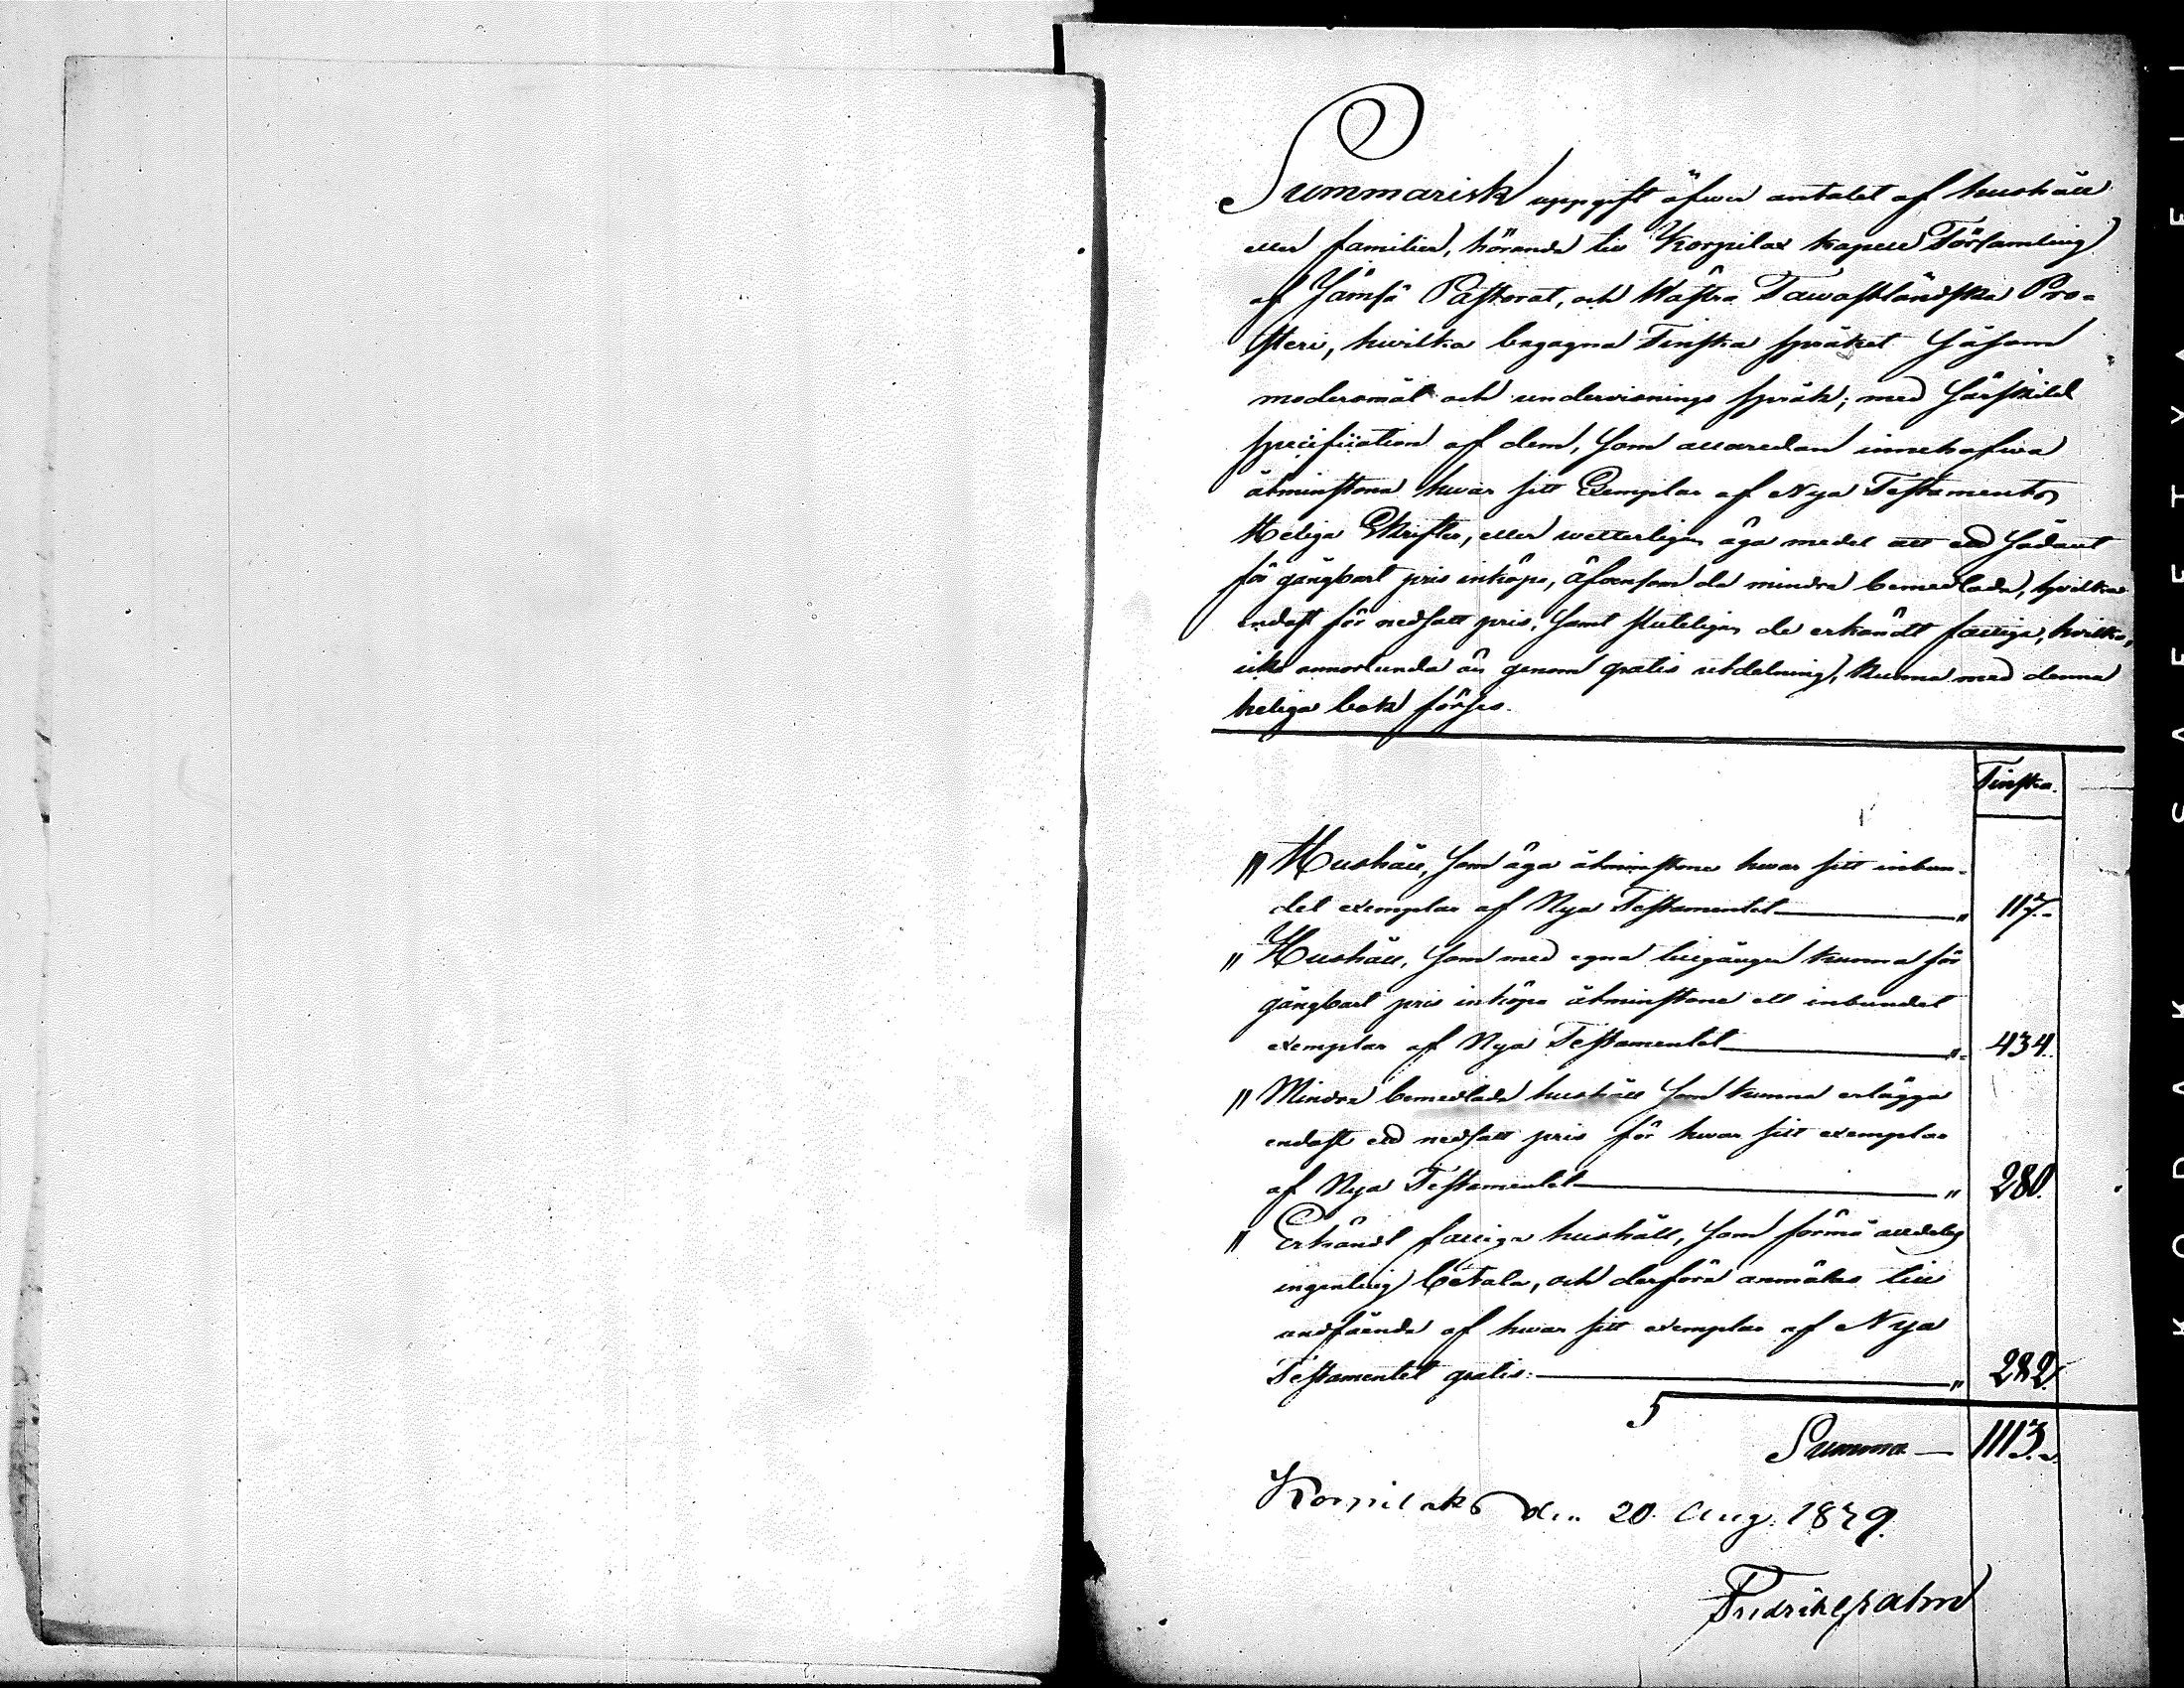 Summarisk uppgift öfwer antalet af hushåll
eller familier, hörande till Korpilax kapell Församling
af Jämsä Pastorat, och Wästra Tawastländska Pro-
steri, hwilka begagna Finska språket såsom
modersmål och undervisnings språk; med särskild
specification af dem, som allaredan innehafwa
åtminstone hwar sitt Exemplar af Nya Testamentes
Heliga Skrifter, eller wetterligen äga medel att ett sådant
för gångbart pris inköpa, äfvensom de mindre bemedlade, hvilka
endast för nedsatt pris, samt sluteligen de erkändt fattiga, hvilka,
icke annorlunda än genom gratis utdelning, kunna med denna
heliga bok förses.
Finska.
" Hushåll, som äga åtminstone hwar sitt inbun-
det exemplar af Nya Testamentet " 117.
" Hushåll, som med egna tillgångar kunna för
gångbart pris inköpa åtminstone ett inbundet
exemplar af Nya Testamentet " 434.
" Mindre bemedlade hushåll som kunna erlägga
endast ett nedsatt pris för hwar sitt exemplar
af Nya Testamentet " 280.
" Erkändt fattiga hushåll, som förmå alldeles
ingenting betala, och derföre anmälas till
undfående af hwar sitt exemplar af Nya
Testamentet gratis. " 282.
Summa — 1113.
Korpilaks den 20 Aug. 1849.
Fredrik
KODAK SAFETY